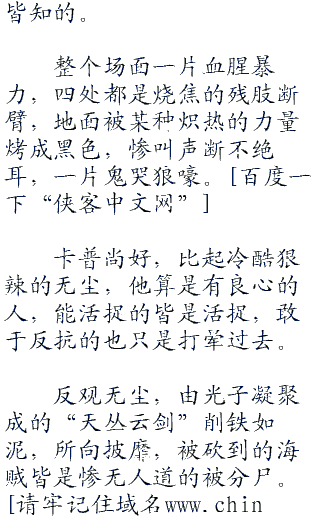 皆知的。
整个场面一片血腥暴
力，四处都是烧焦的残肢断
臂，地面被某种炽热的力量
烤成黑色，惨叫声断不绝
耳，一片鬼哭狼嚎。[百度一
下“侠客中文网”]
卡普尚好，比起冷酷狠
辣的无尘，他算是有良心的
人，能活捉的皆是活捉，敢
于反抗的也只是打晕过去。
反观无尘，由光子凝聚
成的“天丛云剑”削铁如
泥，所向披靡，被砍到的海
贼皆是惨无人道的被分尸。
[请牢记住域名www.chin